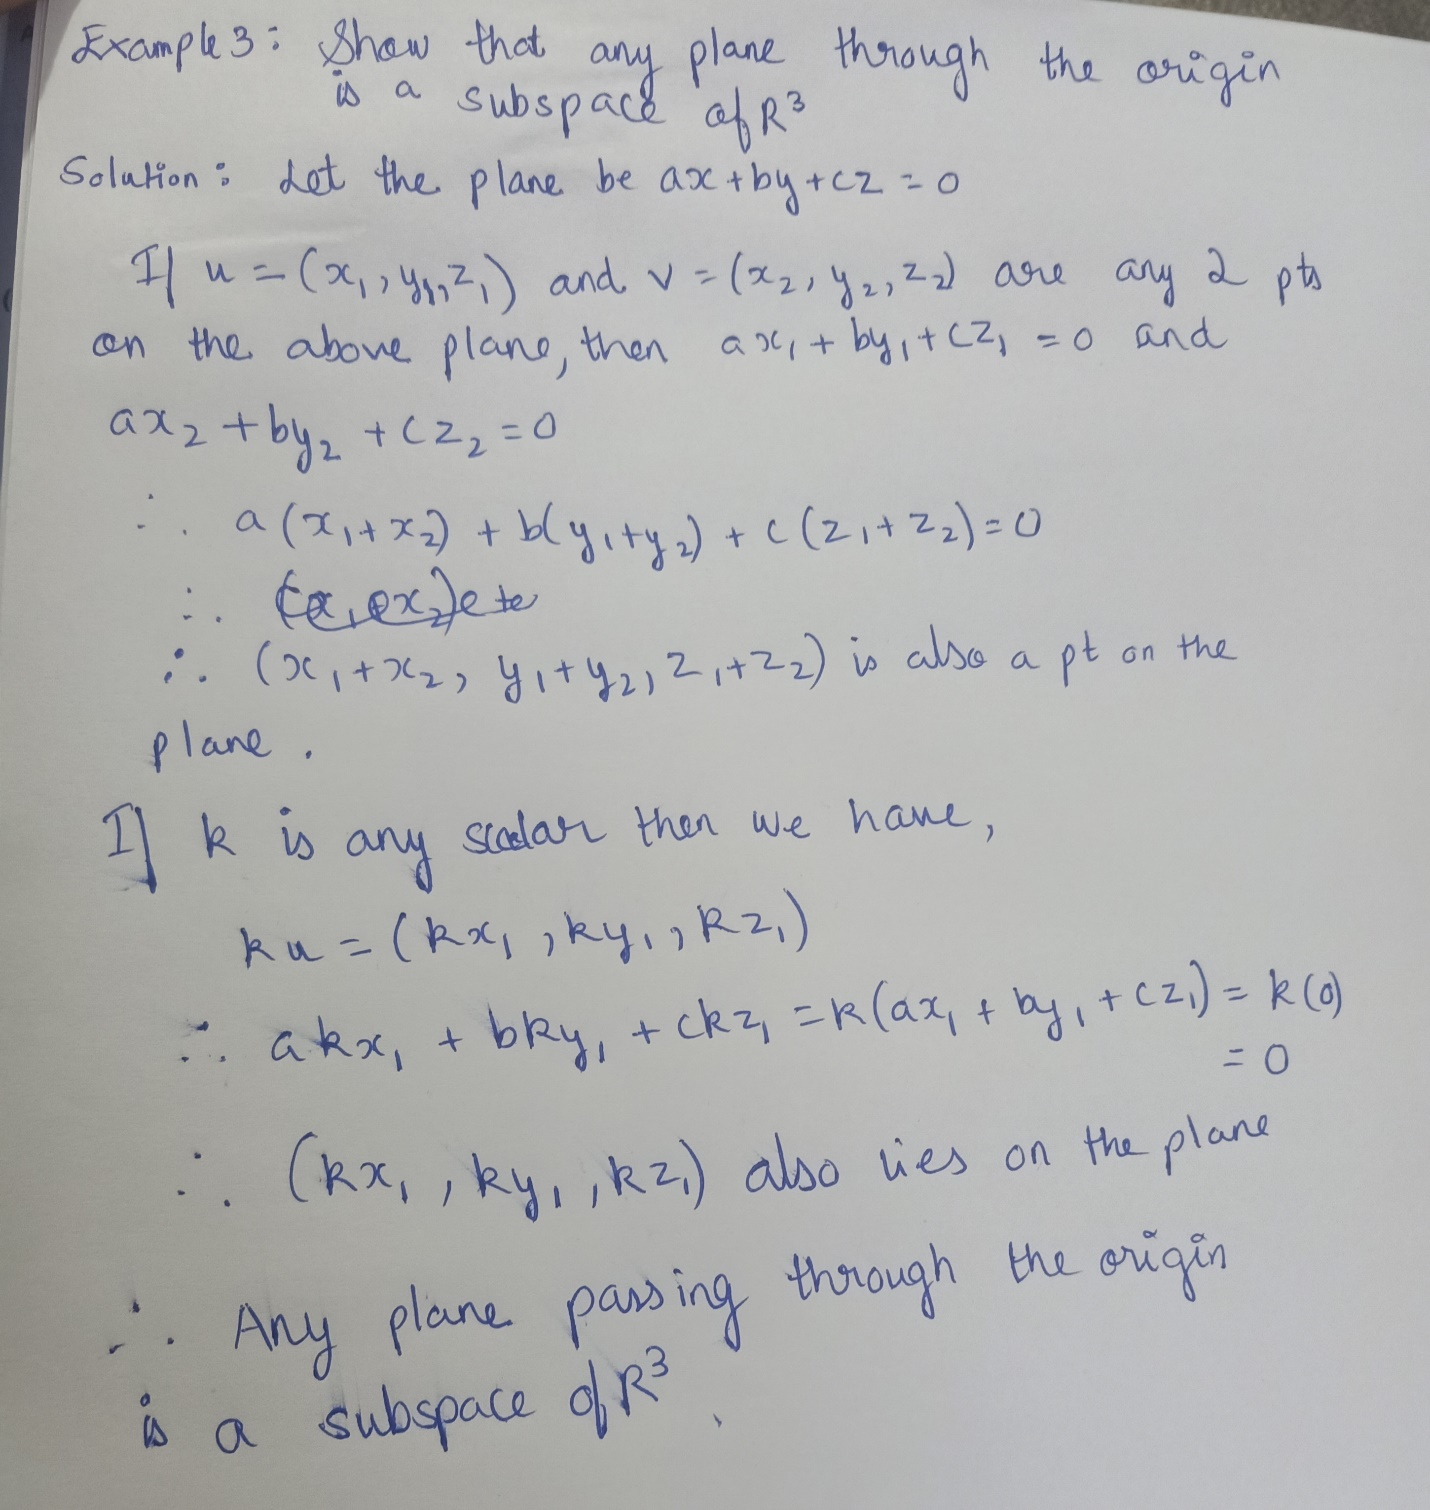 Example 3: Show that any plane through the origin
is a subspace of R³
Solution: Let the plane be ax+by+cz=0
If u=(x₁,y₁,z₁) and v=(x₂,y₂,z₂) are any 2 pts
on the above plane, then ax₁+by₁+cz₁=0 and
ax₂+by₂+cz₂=0
∴ a(x₁+x₂)+b(y₁+y₂)+c(z₁+z₂)=0
∴
∴ (x₁+x₂, y₁+y₂, z₁+z₂) is also a pt on the
plane.
If k is any scalar then we have,
ku=(kx₁,ky₁,kz₁)
∴ akx₁+bky₁+ckz₁=k(ax₁+by₁+cz₁)=k(0)
=0
∴ (kx₁,ky₁,kz₁) also lies on the plane
∴ Any plane passing through the origin
is a subspace of R³.